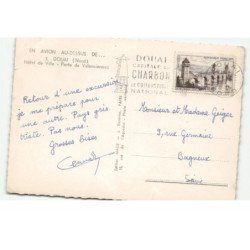 EN AVION AU-DESSUS DE...
DOUAI (Nord)
Hôtel de Ville - Porte de Valenciennes
DOUAI
CAPITALE
CHARBON
NATIONAL
Retour d'une excursion
je me prépare pour
une autre. Pays gris
triste. Pas nous.
Grosses bises
Monsieur et Madame Geiger
9, rue Germaine
Bagneux
Seine